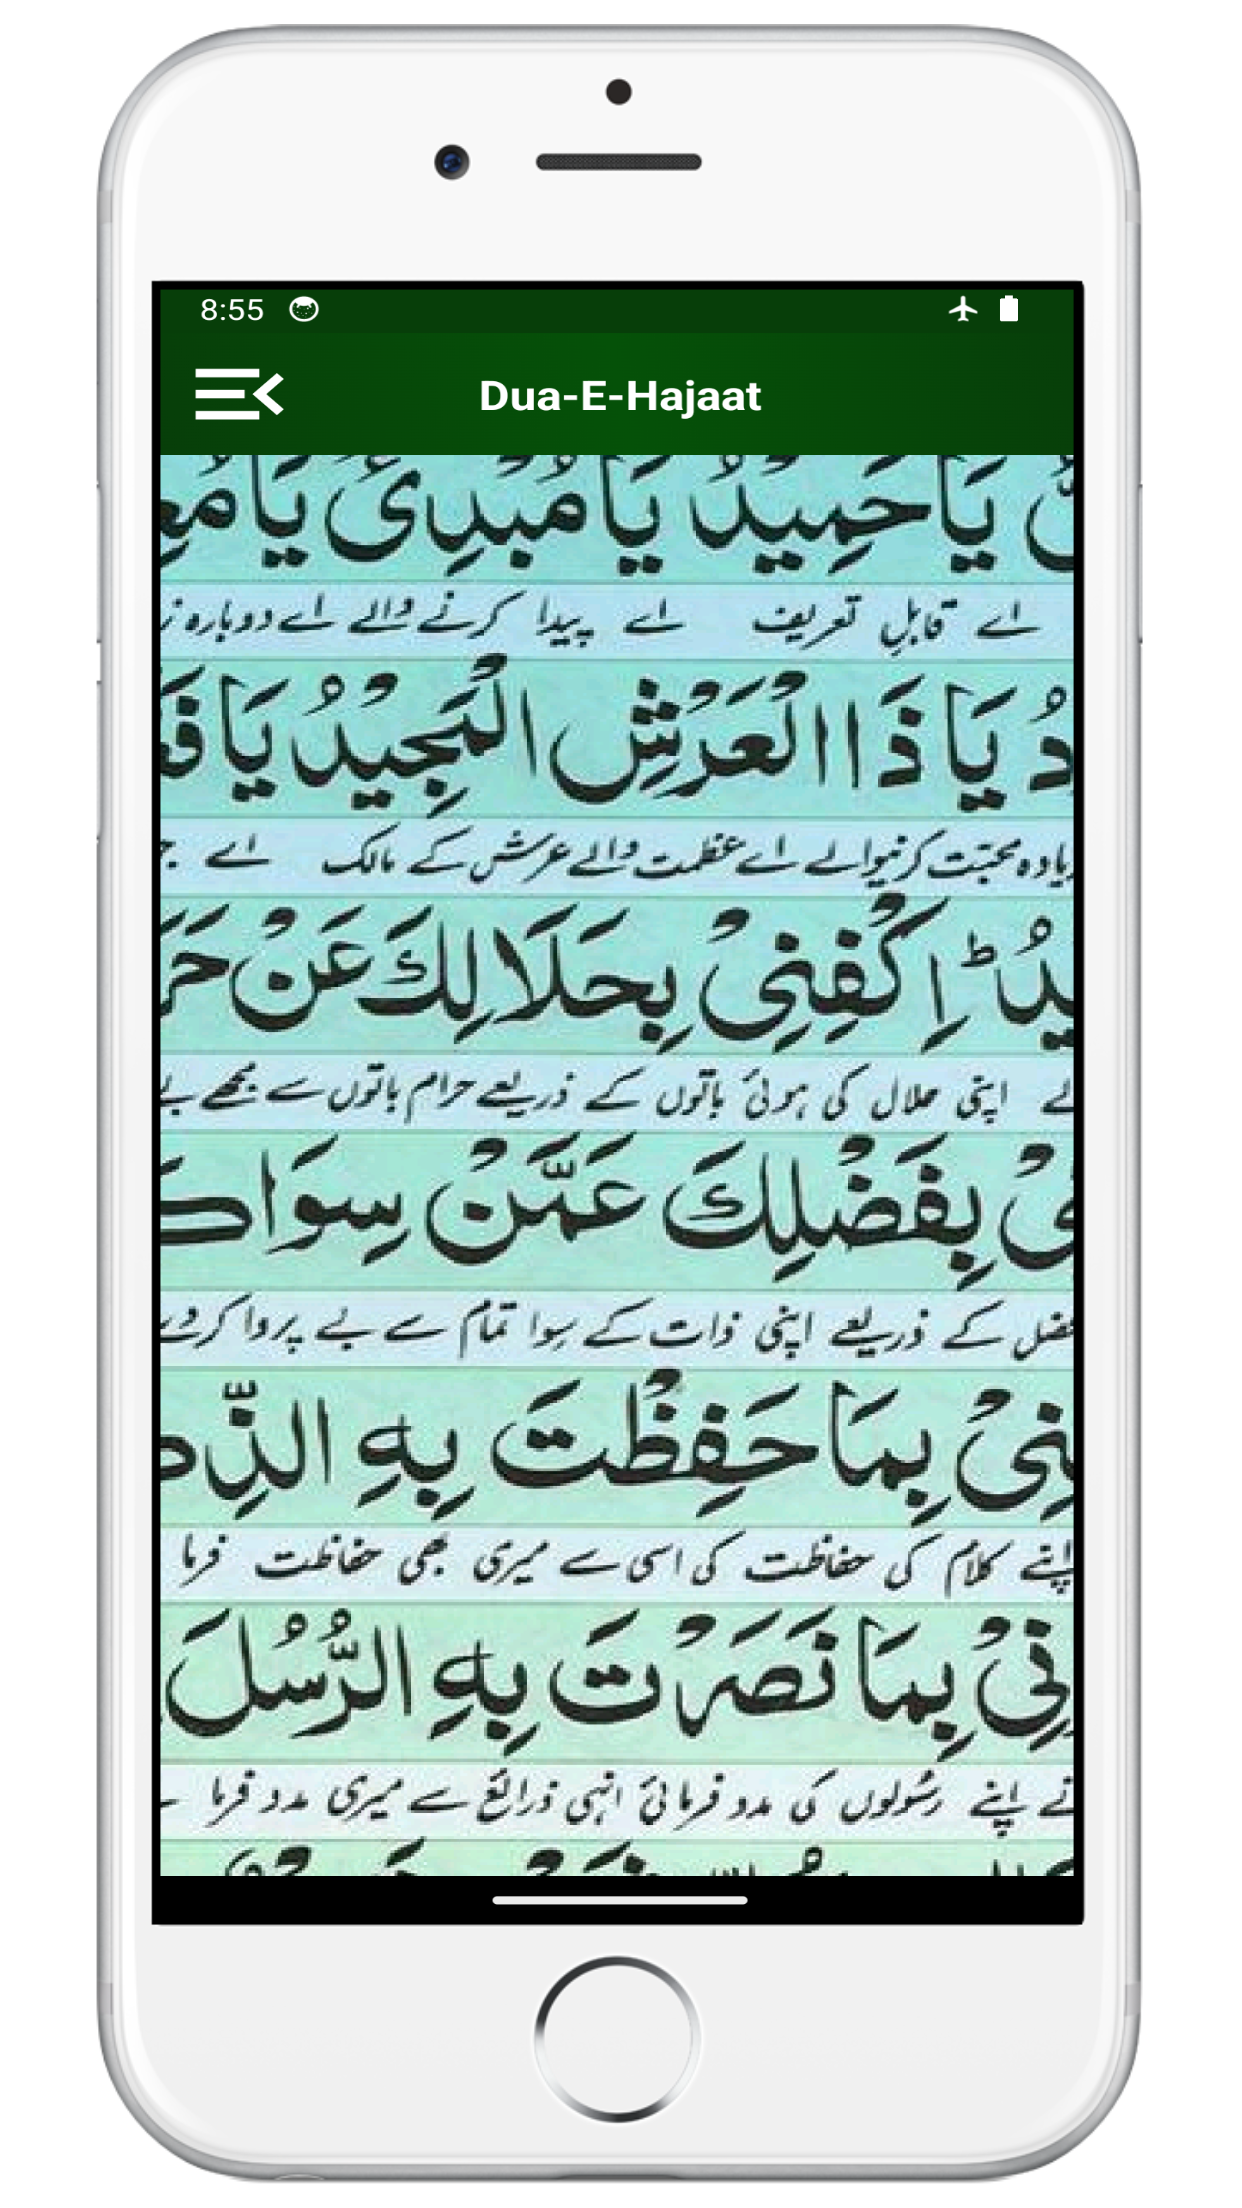 8:55
Dua-E-Hajaat
يَا حَمِيْدُ يَا مُبْدِئُ يَا
اے قابلِ تعریف اے پیدا کرنے والے اے دوبارہ
دُ يَا ذَا الْعَرْشِ الْمَجِيْدُ يَا
یادہ محبّت کرنیوالے اے عظمت والے عرش کے مالک اے
يْدُ ؕ اِكْفِنِيْ بِحَلَالِكَ عَنْ حَرَ
اپنی حلال کی ہوئی باتوں کے ذریعے حرام باتوں سے مجھے
بِفَضْلِكَ عَمَّنْ سِوَاكَ
ضل کے ذریعے اپنی ذات کے سِوا تمام سے بے پروا کردے
نِيْ بِمَا حَفِظْتَ بِهِ الذِّكْ
اپنے کلام کی حفاظت کی اسی سے میری بھی حفاظت فرما
نِيْ بِمَا نَصَرْتَ بِهِ الرُّسُلَ
نے اپنے رسُولوں کی مدد فرمائی انہی ذرائع سے میری مدد فرما ۔